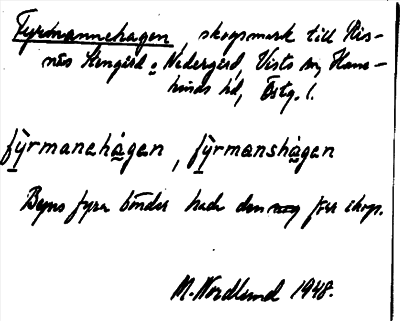 Fyrmannehagen, skogsmark till Ris-
näs Storgård o Nedergård, Vists sn, Hane-
kinds hd, Östg. l.
fỳrmanehågen, fỳrmanshågen
Byns fyra bönder hade den nog förr ihop.
M. Nordlund 1948.